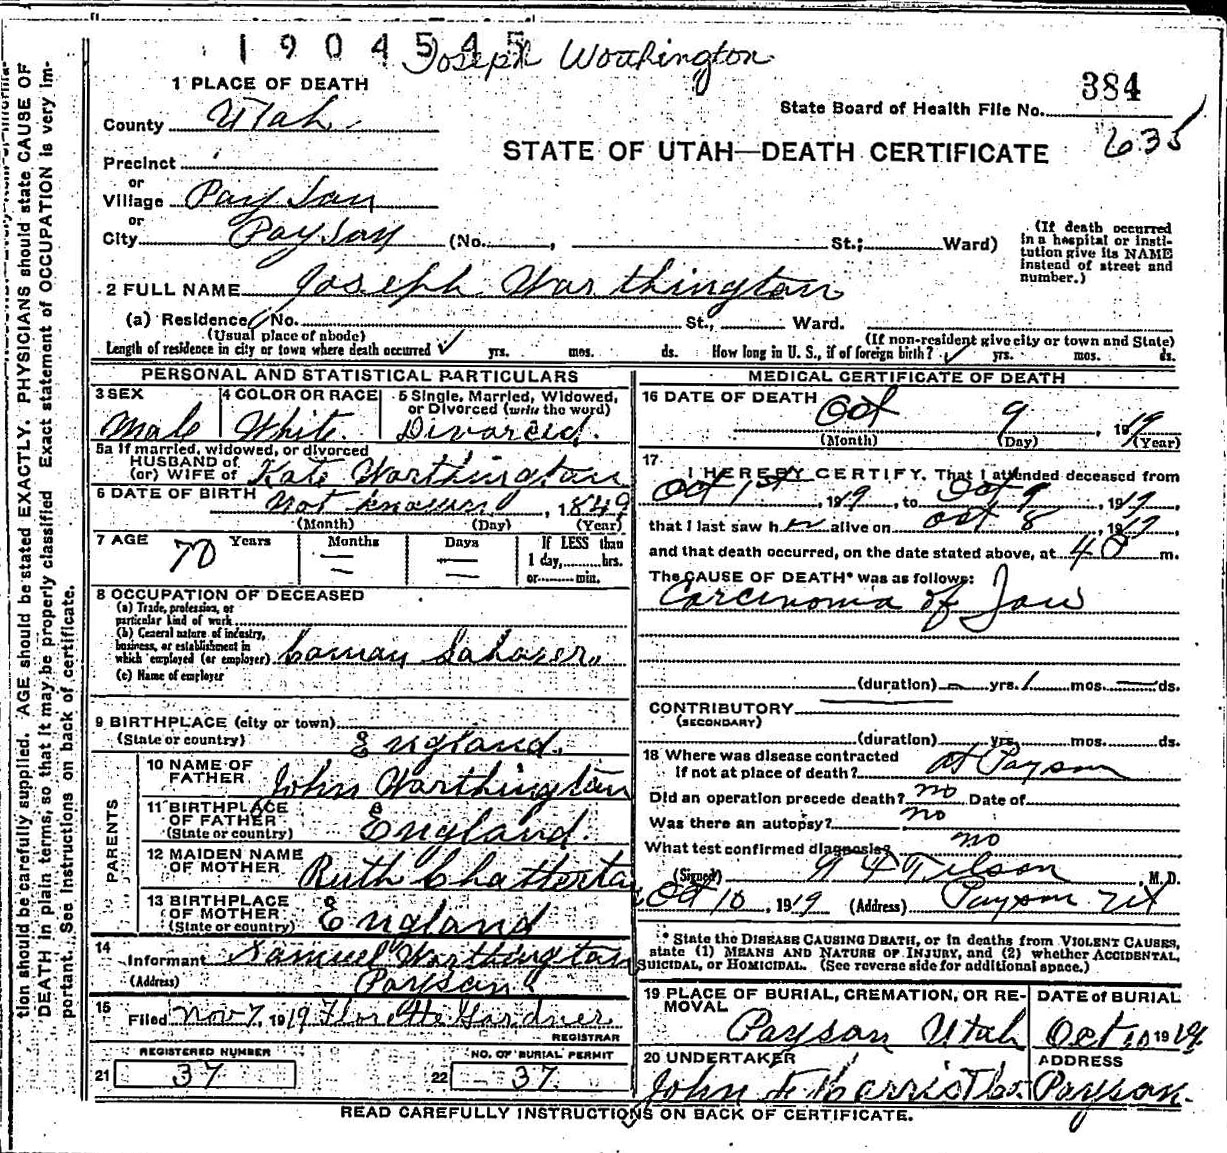 1904545
Joseph Worthington
1 PLACE OF DEATH
384
State Board of Health File No.
635
County Utah
STATE OF UTAH—DEATH CERTIFICATE
Precinct
or
Village Payson
or
City Payson (No. , St.; Ward)
(If death occurred in a hospital or institution give its NAME instead of street and number.)
2 FULL NAME Joseph Worthington
(a) Residence No. St., Ward.
(Usual place of abode) (If non-resident give city or town and State)
Length of residence in city or town where death occurred yrs. mos. ds. How long in U. S., if of foreign birth? yrs. mos. ds.
PERSONAL AND STATISTICAL PARTICULARS
3 SEX 4 COLOR OR RACE 5 Single, Married, Widowed, or Divorced (write the word)
Male White. Divorced.
5a If married, widowed, or divorced
HUSBAND of
(or) WIFE of Kate Worthington
6 DATE OF BIRTH not known, 1849
(Month) (Day) (Year)
7 AGE 70 Years Months Days If LESS than 1 day, hrs. or min.
8 OCCUPATION OF DECEASED
(a) Trade, profession, or particular kind of work
(b) General nature of industry, business, or establishment in which employed (or employer)
(c) Name of employer
9 BIRTHPLACE (city or town)
(State or country) England.
PARENTS
10 NAME OF FATHER John Worthington
11 BIRTHPLACE OF FATHER (State or country) England.
12 MAIDEN NAME OF MOTHER Ruth
13 BIRTHPLACE OF MOTHER (State or country) England
14 Informant Samuel Worthington
(Address) Payson
15 Filed Nov 7, 1919 Florette Gardner
REGISTRAR
REGISTERED NUMBER NO. OF BURIAL PERMIT
21 37 22 37
MEDICAL CERTIFICATE OF DEATH
16 DATE OF DEATH Oct 9, 1919
(Month) (Day) (Year)
17 I HEREBY CERTIFY, That I attended deceased from
Oct 1st, 1919, to Oct 9, 1919,
that I last saw h alive on Oct 8, 1919
and that death occurred, on the date stated above, at m.
The CAUSE OF DEATH* was as follows:
Carcinoma of Jaw
(duration) yrs. 1 mos. ds.
CONTRIBUTORY
(SECONDARY)
(duration) yrs. mos. ds.
18 Where was disease contracted
If not at place of death? at Payson
Did an operation precede death? no Date of
Was there an autopsy? no
What test confirmed diagnosis? no
(Signed) Tilson, M. D.
Oct 10, 1919 (Address) Payson Ut
* State the DISEASE CAUSING DEATH, or in deaths from VIOLENT CAUSES,
state (1) MEANS AND NATURE OF INJURY, and (2) whether ACCIDENTAL,
SUICIDAL, or HOMICIDAL. (See reverse side for additional space.)
19 PLACE OF BURIAL, CREMATION, OR REMOVAL DATE of BURIAL
Payson Utah Oct 10 1919
20 UNDERTAKER ADDRESS
John Payson.
READ CAREFULLY INSTRUCTIONS ON BACK OF CERTIFICATE.
tion should be carefully supplied. AGE should be stated EXACTLY. PHYSICIANS should state CAUSE OF
DEATH in plain terms, so that it may be properly classified Exact statement of OCCUPATION is very im-
portant. See instructions on back of certificate.